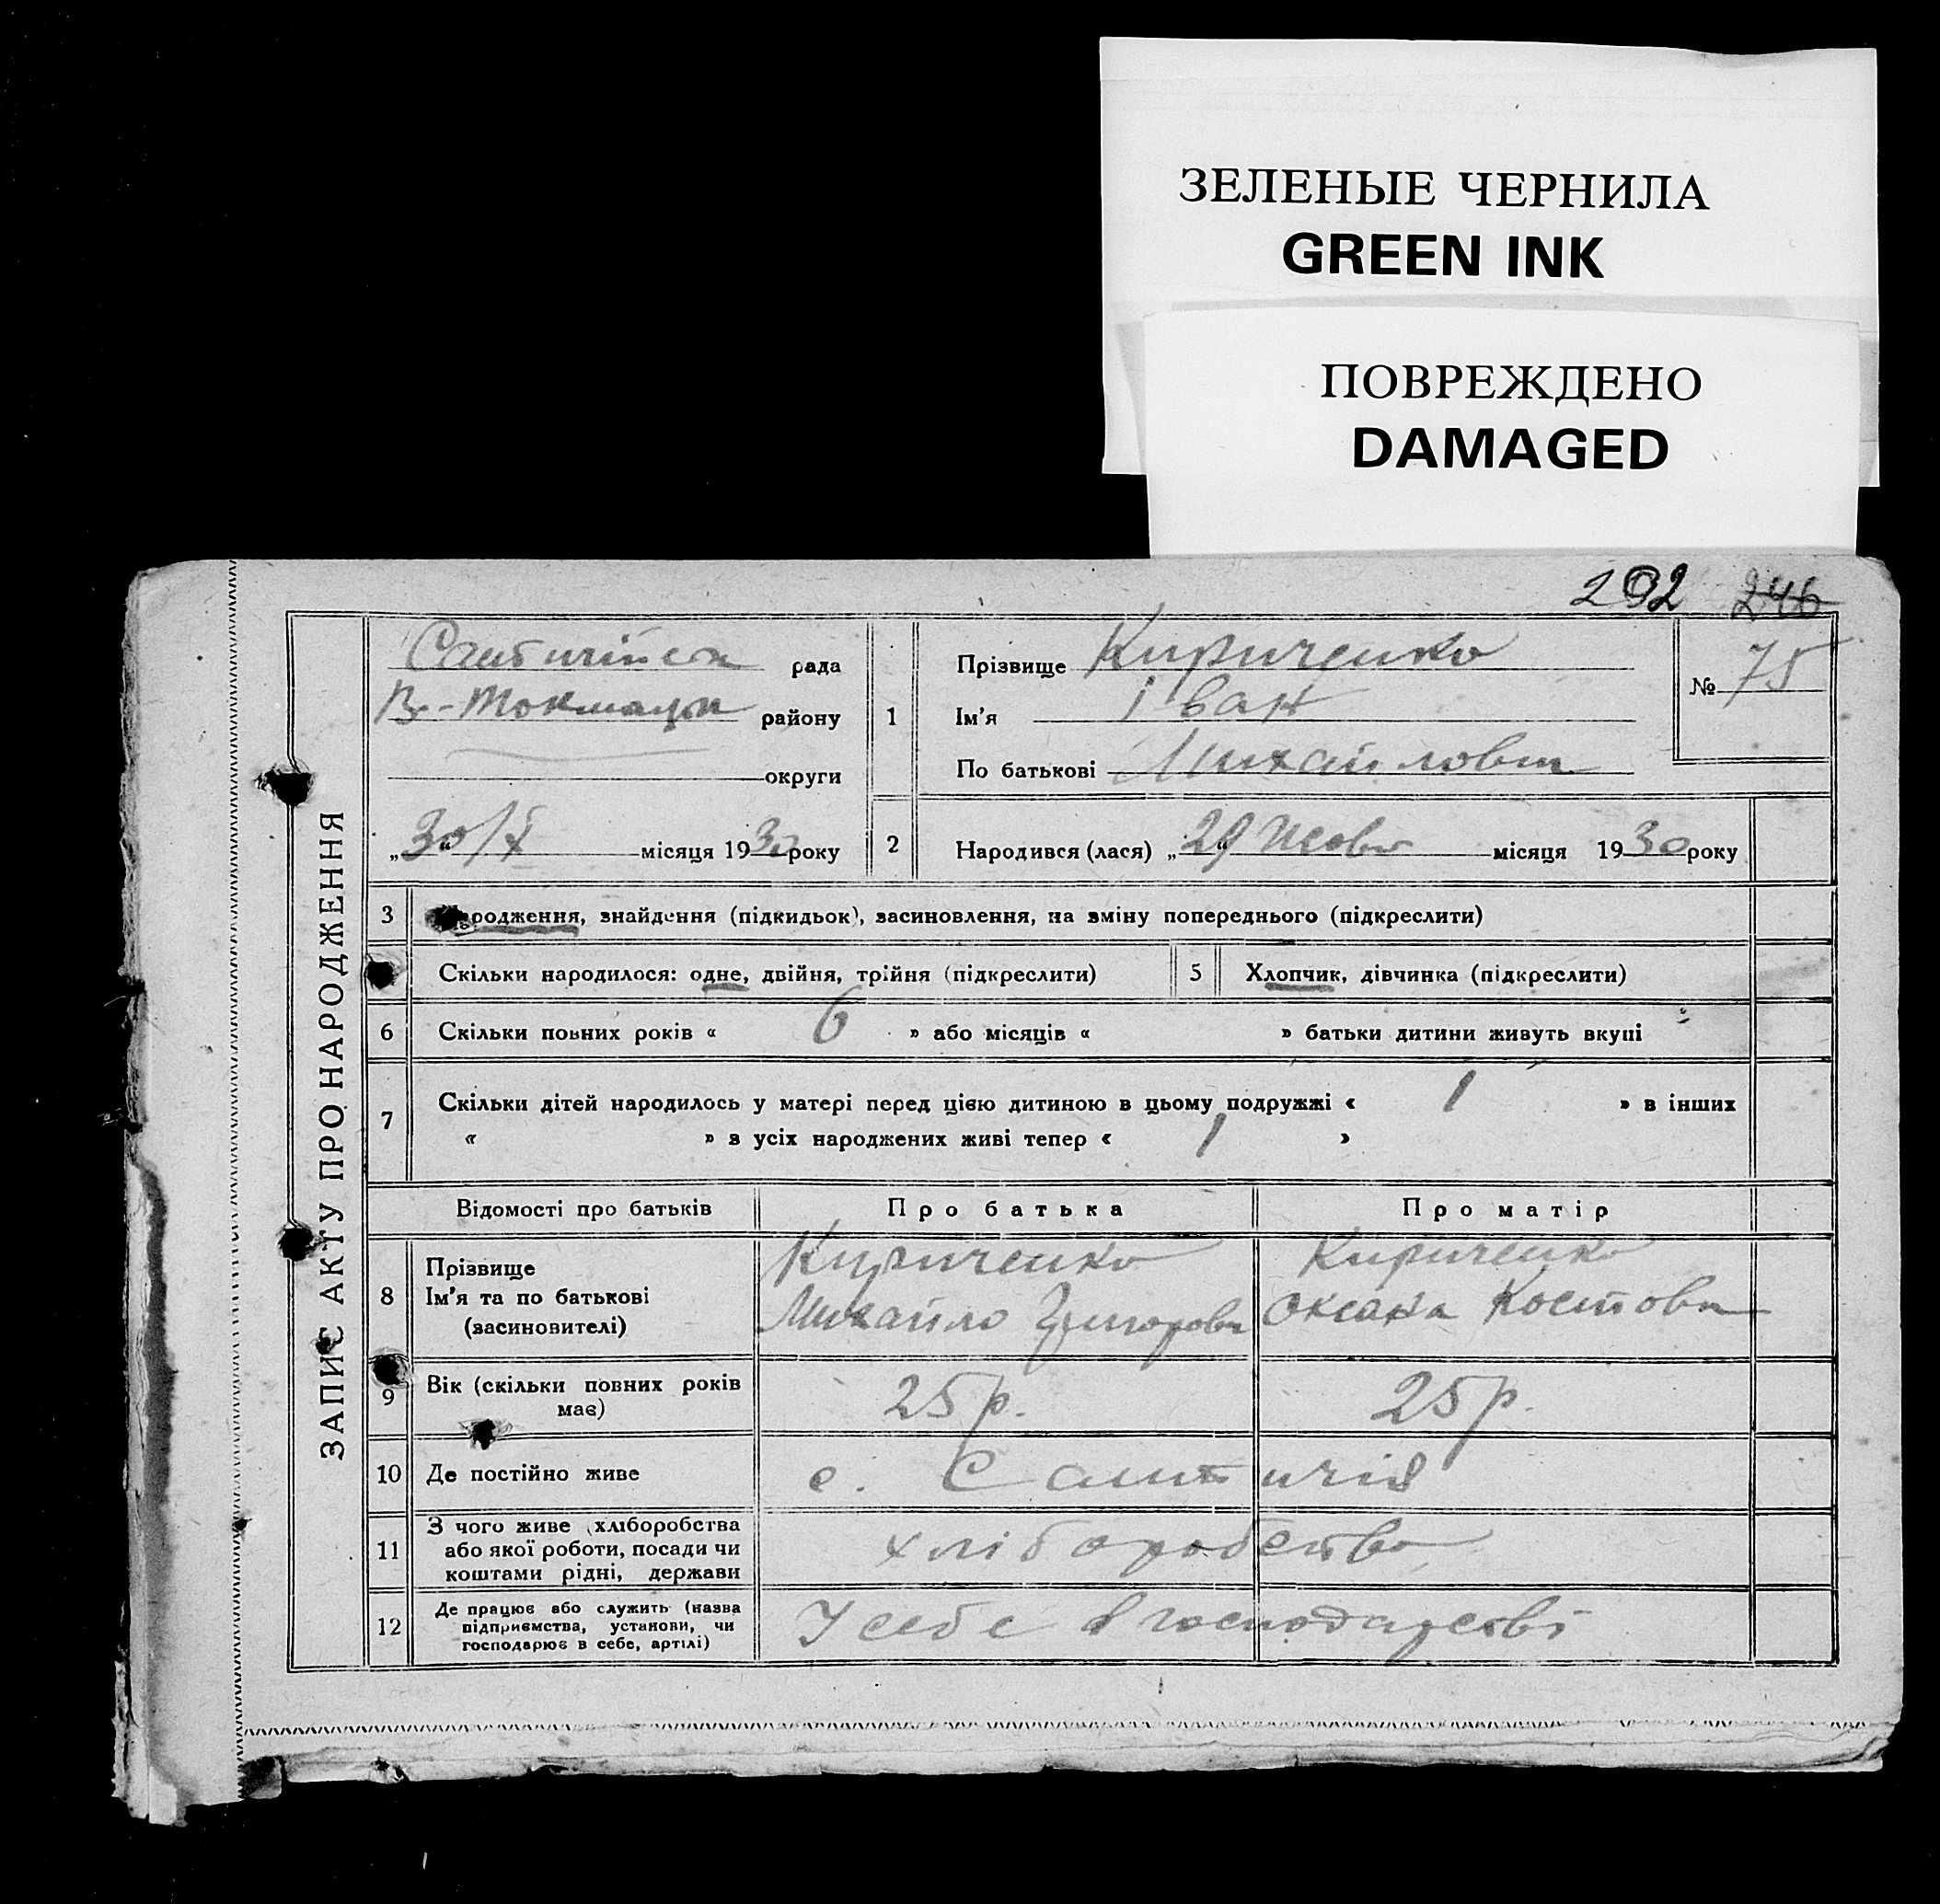 ЗЕЛЕНЫЕ ЧЕРНИЛА
GREEN INK
ПОВРЕЖДЕНО
DAMAGED
202 246
ЗАПИС АКТУ ПРО НАРОДЖЕННЯ
рада
В.-Токмацьк району
округи
„30/X" місяця 1930 року
1
Прізвище Кириченко
Ім'я Іван
По батькові Михайлович
№ 75
2 Народився (лася) „29 Жовт" місяця 1930 року
3 Народження, знайдення (підкидьок), засиновлення, на зміну попереднього (підкреслити)
Скільки народилося: одне, двійня, трійня (підкреслити) 5 Хлопчик, дівчинка (підкреслити)
6 Скільки повних років « 6 » або місяців « » батьки дитини живуть вкупі
7 Скільки дітей народилось у матері перед цією дитиною в цьому подружжі « 1 » в інших
« » з усіх народжених живі тепер « 1 »
Відомості про батьків Про батька Про матір
8 Прізвище
Ім'я та по батькові
(засиновителі)
Кириченко
Михайло Григоров
Кириченко
Оксана Костовн
9 Вік (скільки повних років
має)
25 р. 25 р.
10 Де постійно живе
с.
11 З чого живе (хліборобства
або якої роботи, посади чи
коштами рідні, держави
хліборобство
12 Де працює або служить (назва
підприємства, установи, чи
господарює в себе, артілі)
У себе в господарстві